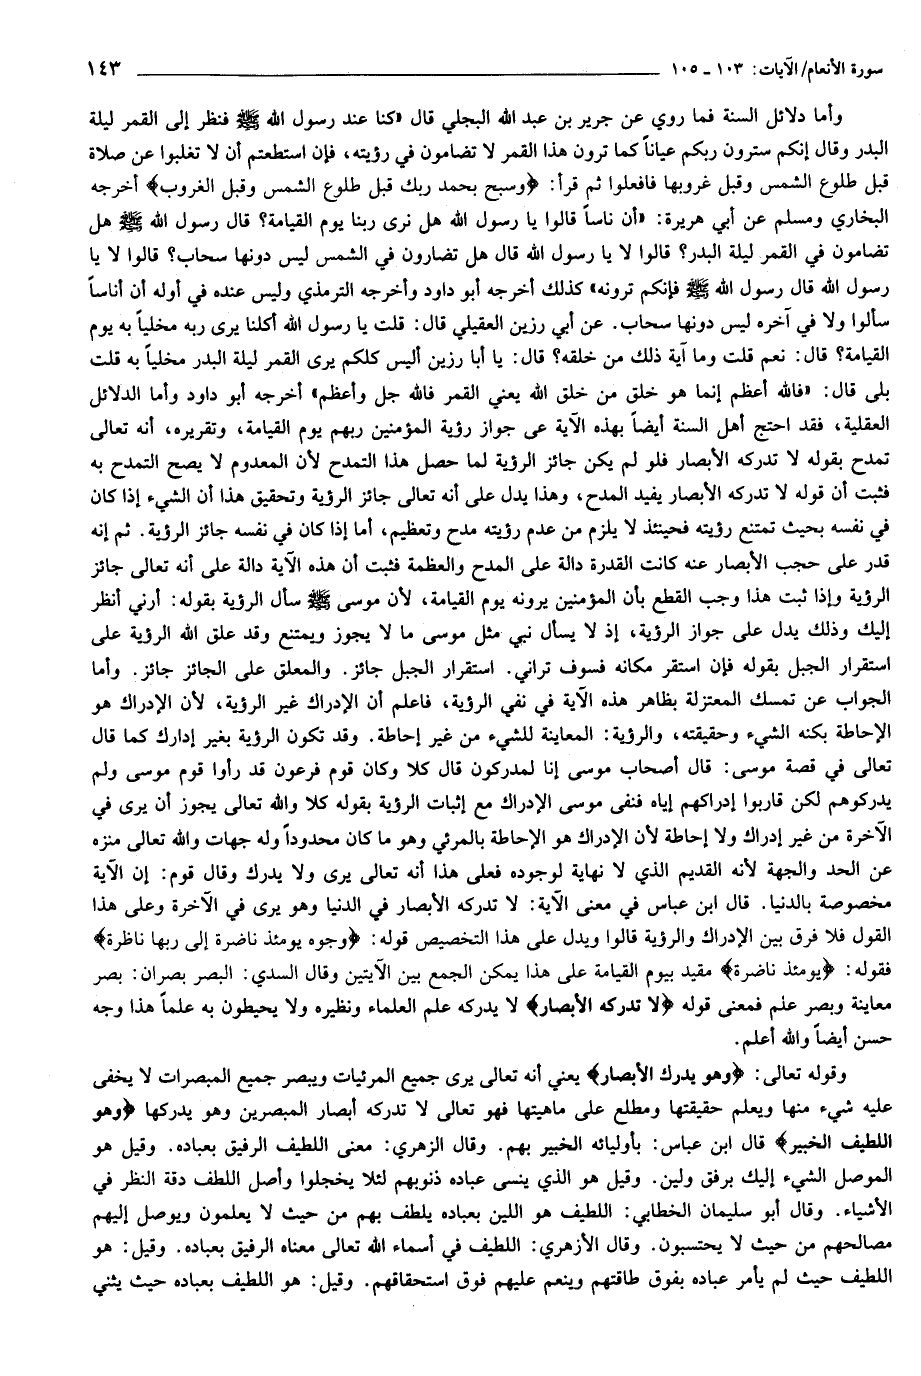 سورة الأنعام/الآيات: ١٠٣ ـ ١٠٥ ١٤٣
وأما دلائل السنة فما روي عن جرير بن عبد الله البجلي قال «كنا عند رسول الله ﷺ فنظر إلى القمر ليلة
البدر وقال إنكم سترون ربكم عياناً كما ترون هذا القمر لا تضامون في رؤيته، فإن استطعتم أن لا تغلبوا عن صلاة
قبل طلوع الشمس وقبل غروبها فافعلوا ثم قرأ: ﴿وسبح بحمد ربك قبل طلوع الشمس وقبل الغروب﴾ أخرجه
البخاري ومسلم عن أبي هريرة: «أن ناساً قالوا يا رسول الله هل نرى ربنا يوم القيامة؟ قال رسول الله ﷺ هل
تضامون في القمر ليلة البدر؟ قالوا لا يا رسول الله قال هل تضارون في الشمس ليس دونها سحاب؟ قالوا لا يا
رسول الله قال رسول الله ﷺ فإنكم ترونه» كذلك أخرجه أبو داود وأخرجه الترمذي وليس عنده في أوله أن أناساً
سألوا ولا في آخره ليس دونها سحاب. عن أبي رزين العقيلي قال: قلت يا رسول الله أكلنا يرى ربه مخلياً به يوم
القيامة؟ قال: نعم قلت وما آية ذلك من خلقه؟ قال: يا أبا رزين أليس كلكم يرى القمر ليلة البدر مخلياً به قلت
بلى قال: «فالله أعظم إنما هو خلق من خلق الله يعني القمر فالله جل وأعظم» أخرجه أبو داود وأما الدلائل
العقلية، فقد احتج أهل السنة أيضاً بهذه الآية عى جواز رؤية المؤمنين ربهم يوم القيامة، وتقريره، أنه تعالى
تمدح بقوله لا تدركه الأبصار فلو لم يكن جائز الرؤية لما حصل هذا التمدح لأن المعدوم لا يصح التمدح به
فثبت أن قوله لا تدركه الأبصار يفيد المدح، وهذا يدل على أنه تعالى جائز الرؤية وتحقيق هذا أن الشيء إذا كان
في نفسه بحيث تمتنع رؤيته فحينئذ لا يلزم من عدم رؤيته مدح وتعظيم، أما إذا كان في نفسه جائز الرؤية. ثم إنه
قدر على حجب الأبصار عنه كانت القدرة دالة على المدح والعظمة فثبت أن هذه الآية دالة على أنه تعالى جائز
الرؤية وإذا ثبت هذا وجب القطع بأن المؤمنين يرونه يوم القيامة، لأن موسى ﷺ سأل الرؤية بقوله: أرني أنظر
إليك وذلك يدل على جواز الرؤية، إذ لا يسأل نبي مثل موسى ما لا يجوز ويمتنع وقد علق الله الرؤية على
استقرار الجبل بقوله فإن استقر مكانه فسوف تراني. استقرار الجبل جائز. والمعلق على الجائز جائز. وأما
الجواب عن تمسك المعتزلة بظاهر هذه الآية في نفي الرؤية، فاعلم أن الإدراك غير الرؤية، لأن الإدراك هو
الإحاطة بكنه الشيء وحقيقته، والرؤية: المعاينة للشيء من غير إحاطة. وقد تكون الرؤية بغير إدارك كما قال
تعالى في قصة موسى: قال أصحاب موسى إنا لمدركون قال كلا وكان قوم فرعون قد رأوا قوم موسى ولم
يدركوهم لكن قاربوا إدراكهم إياه فنفى موسى الإدراك مع إثبات الرؤية بقوله كلا والله تعالى يجوز أن يرى في
الآخرة من غير إدراك ولا إحاطة لأن الإدراك هو الإحاطة بالمرئي وهو ما كان محدوداً وله جهات والله تعالى منزه
عن الحد والجهة لأنه القديم الذي لا نهاية لوجوده فعلى هذا أنه تعالى يرى ولا يدرك وقال قوم: إن الآية
مخصوصة بالدنيا. قال ابن عباس في معنى الآية: لا تدركه الأبصار في الدنيا وهو يرى في الآخرة وعلى هذا
القول فلا فرق بين الإدراك والرؤية قالوا ويدل على هذا التخصيص قوله: ﴿وجوه يومئذ ناضرة إلى ربها ناظرة﴾
فقوله: ﴿يومئذ ناضرة﴾ مقيد بيوم القيامة على هذا يمكن الجمع بين الآيتين وقال السدي: البصر بصران: بصر
معاينة وبصر علم فمعنى قوله ﴿لا تدركه الأبصار﴾ لا يدركه علم العلماء ونظيره ولا يحيطون به علماً هذا وجه
حسن أيضاً والله أعلم.
وقوله تعالى: ﴿وهو يدرك الأبصار﴾ يعني أنه تعالى يرى جميع المرئيات ويبصر جميع المبصرات لا يخفى
عليه شيء منها ويعلم حقيقتها ومطلع على ماهيتها فهو تعالى لا تدركه أبصار المبصرين وهو يدركها ﴿وهو
اللطيف الخبير﴾ قال ابن عباس: بأوليائه الخبير بهم. وقال الزهري: معنى اللطيف الرفيق بعباده. وقيل هو
الموصل الشيء إليك برفق ولين. وقيل هو الذي ينسى عباده ذنوبهم لئلا يخجلوا وأصل اللطف دقة النظر في
الأشياء. وقال أبو سليمان الخطابي: اللطيف هو اللين بعباده يلطف بهم من حيث لا يعلمون ويوصل إليهم
مصالحهم من حيث لا يحتسبون. وقال الأزهري: اللطيف في أسماء الله تعالى معناه الرفيق بعباده. وقيل: هو
اللطيف حيث لم يأمر عباده بفوق طاقتهم وينعم عليهم فوق استحقاقهم. وقيل: هو اللطيف بعباده حيث يثني